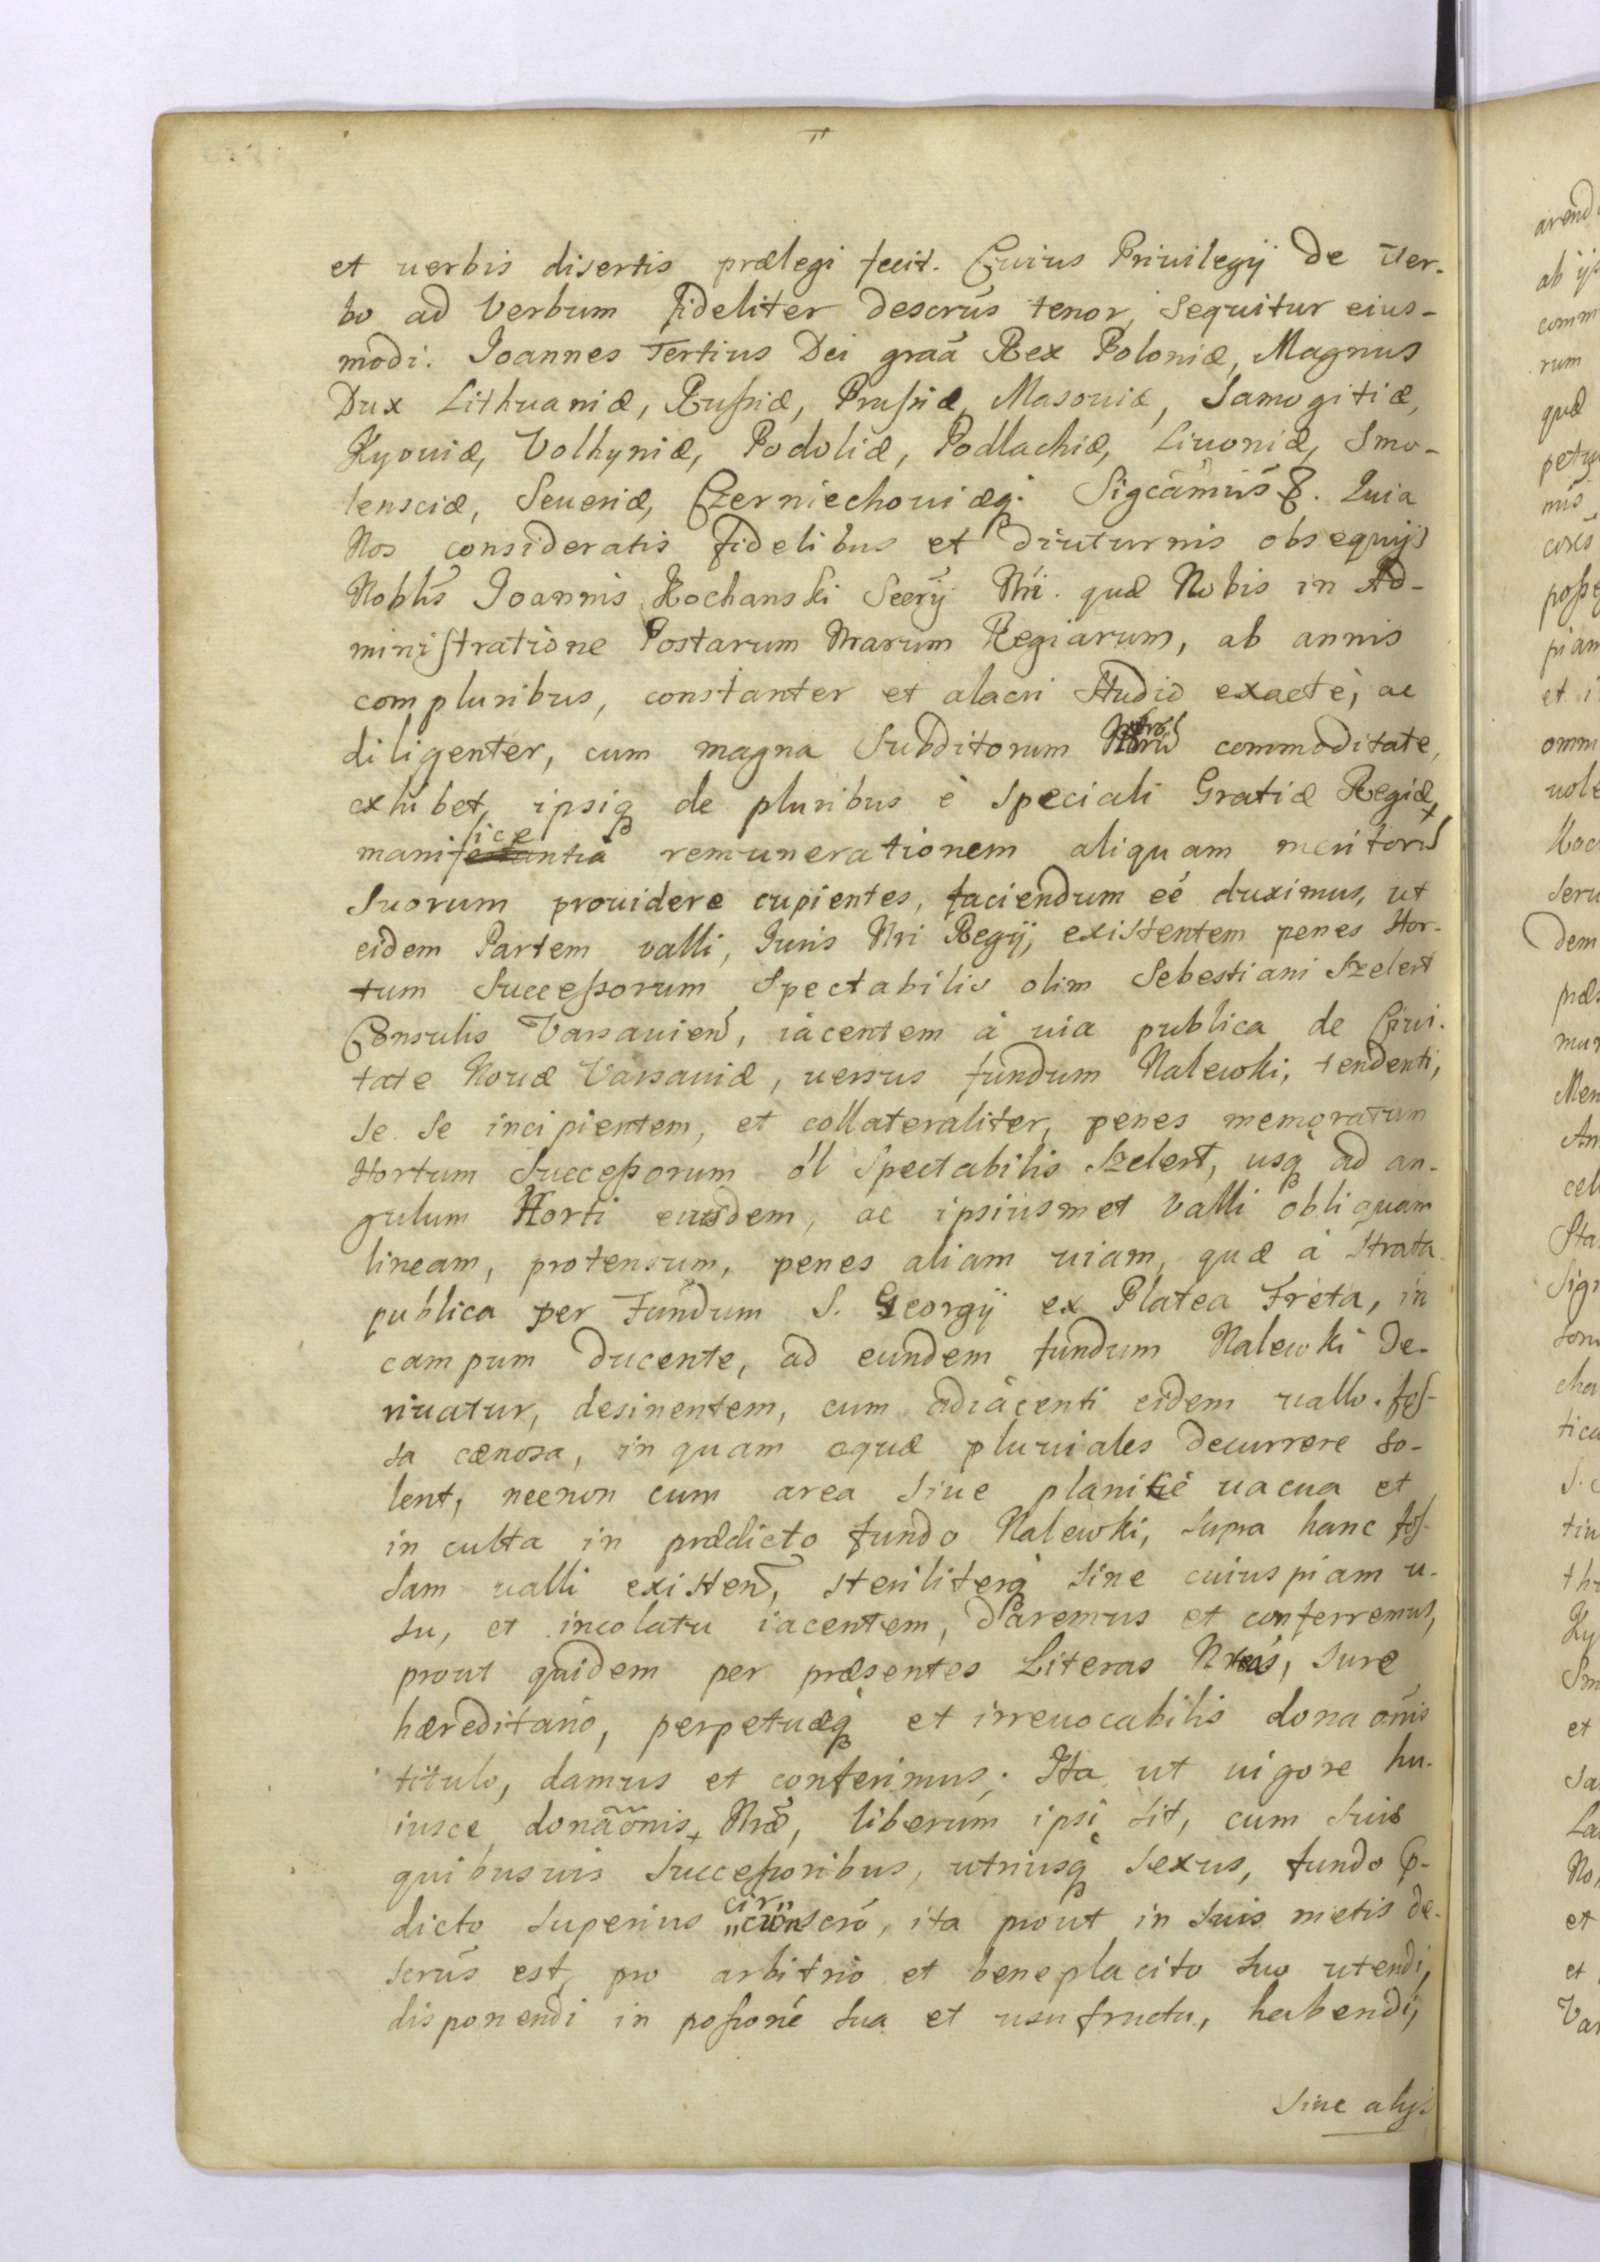 et uerbis disertis prælegi fecit. Cuius Priuilegij de Ver-
bo ad Verbum fideliter descrũs tenor, sequitur eius-
modi. Joannes Tertius Dei graã Rex Poloniæ, Magnus
Dux Lithuaniæ, Rußiæ, Prußiæ, Masouiæ, Samogitiæ,
Kyouiæ, Volhyniæ, Podoliæ, Podlachiæ, Liuoniæ, Smo-
lensciæ, Seueriæ, Czerniechouiæq. Sigcãmus &. Quia
Nos consideratis fidelibus et diuturnis obsequijs
Noblis̃ Joannis Kochanski Secrij̃ Nri. quæ Nobis in Ad-
ministratione Postarum Nrarum Regiarum, ab annis
compluribus, constanter et alacri studio exactè, ac
diligenter, cum magna Subditorum commoditate,
exhibet, ipsiq de pluribus è speciali Gratiæ Regiæ,
munificentia remunerationem aliquam meritorũ
suorum prouidere cupientes, faciendum eé duximus, ut
eidem Partem valli, Juris Nri Regij, existentem penes Hor-
tum Succeßorum Spectabilis olim Sebestiani Szelert
Consulis Varsauieñ, iacentem à uia publica de Ciui-
tate Nouæ Varsauiæ, uersus fundum Nalewki, tendenti,
se se incipientem, et collateraliter, penes memoratum
Hortum Succeßorum ol Spectabilis Szelert, usq ad an-
gulum Horti eiusdem, ac ipsiusmet Valli obliquam
lineam, protensum, penes aliam uiam, quæ à strata
publica per Fundum S. Georgij ex Platea Freta, in
campum ducente, ad eundem fundum Nalewki de-
riuatur, desinentem, cum adiacenti eidem uallo. fos-
sa cænosa, in quam aquæ pluuiales decurrere so-
lent, necnon cum area siue planitie uacua et
inculta in prædicto fundo Nalewki, supra hanc fos-
sam ualli existeñ, steriliterq sine cuiuspiam u-
su, et incolatu iacentem, daremus et conferremus,
prout quidem per præsentes Literas Nras, Jure
hæreditario, perpetuæq et irreuocabilis donaõnis
titulo, damus et conferimus. Ita ut uigore hu-
iusce donãõnis Nræ, liberum ipsi sit, cum suis
quibusuis Succeßoribus, utriusq sexus, fundo p-
dicto superius circumscrõ, ita prout in suis metis de-
scrũs est, pro arbitrio et beneplacito suo utendi,
disponendi in poßioné sua et usufructu, habendi,
Siue alijs